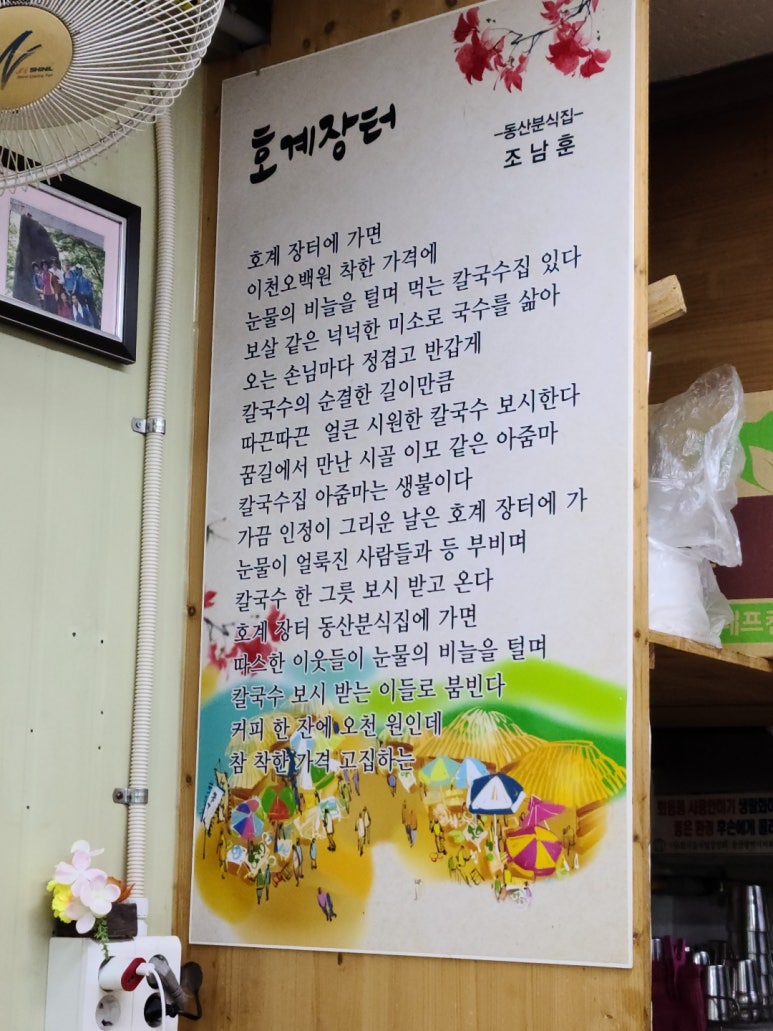 SHINIL
호계장터
-동산분식집-
조남훈
호계 장터에 가면
이천오백원 착한 가격에
눈물의 비늘을 털며 먹는 칼국수집 있다
보살 같은 넉넉한 미소로 국수를 삶아
오는 손님마다 정겹고 반갑게
칼국수의 순결한 길이만큼
따끈따끈 얼큰 시원한 칼국수 보시한다
꿈길에서 만난 시골 이모 같은 아줌마
칼국수집 아줌마는 생불이다
가끔 인정이 그리운 날은 호계 장터에 가
눈물이 얼룩진 사람들과 등 부비며
칼국수 한 그릇 보시 받고 온다
호계 장터 동산분식집에 가면
따스한 이웃들이 눈물의 비늘을 털며
칼국수 보시 받는 이들로 붐빈다
커피 한 잔에 오천 원인데
참 착한 가격 고집하는